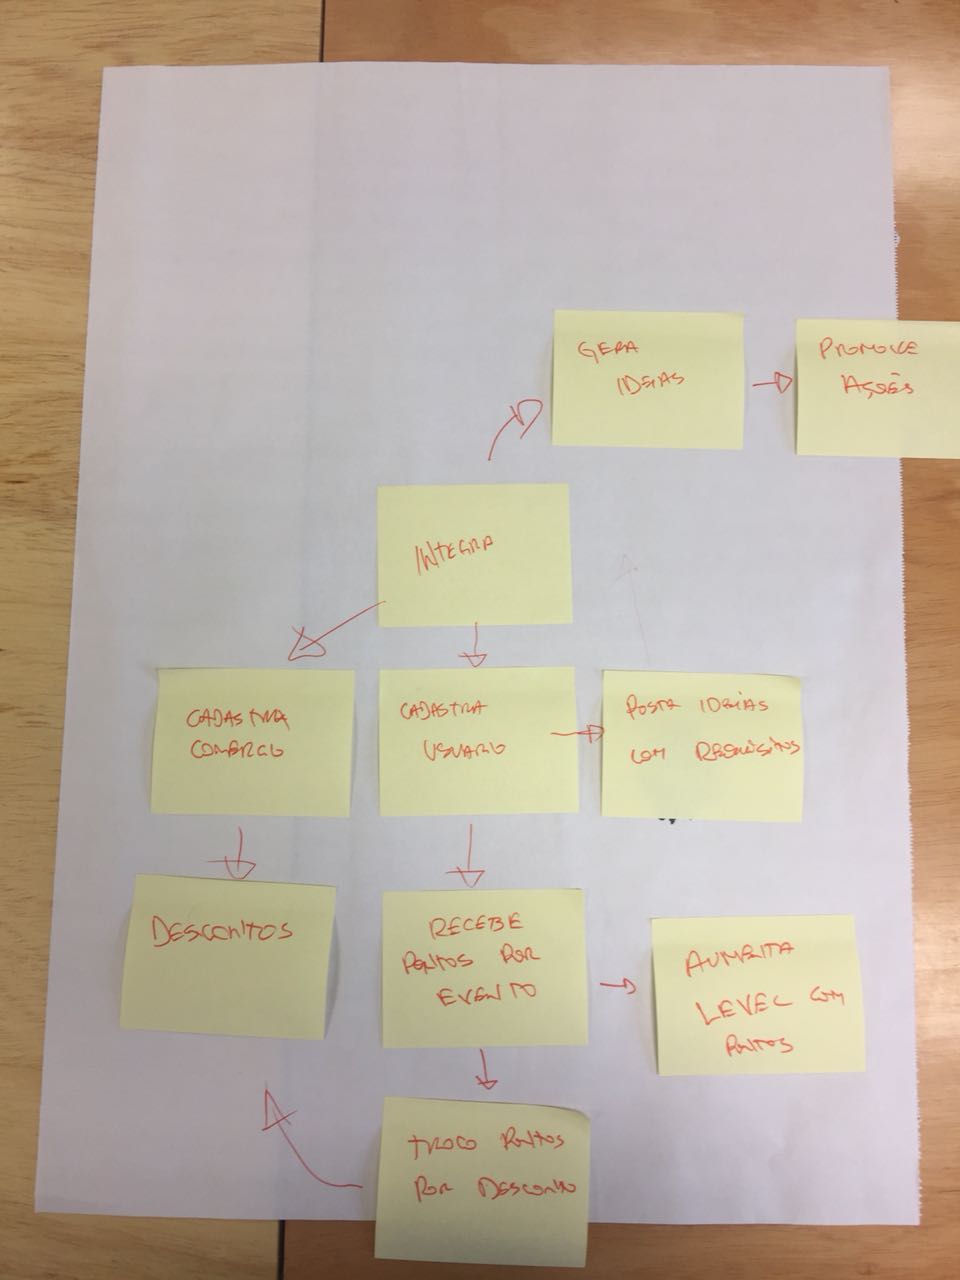 GERA
IDEIAS
PROMOVE
AÇÕES
INTEGRA
CADASTRA
COMERCIO
CADASTRA
USUARIO
POSTA IDEIAS
COM REQUISITOS
DESCONTOS
RECEBE
PONTOS POR
EVENTO
AUMENTA
LEVEL COM
PONTOS
TROCO PONTOS
POR DESCONTO